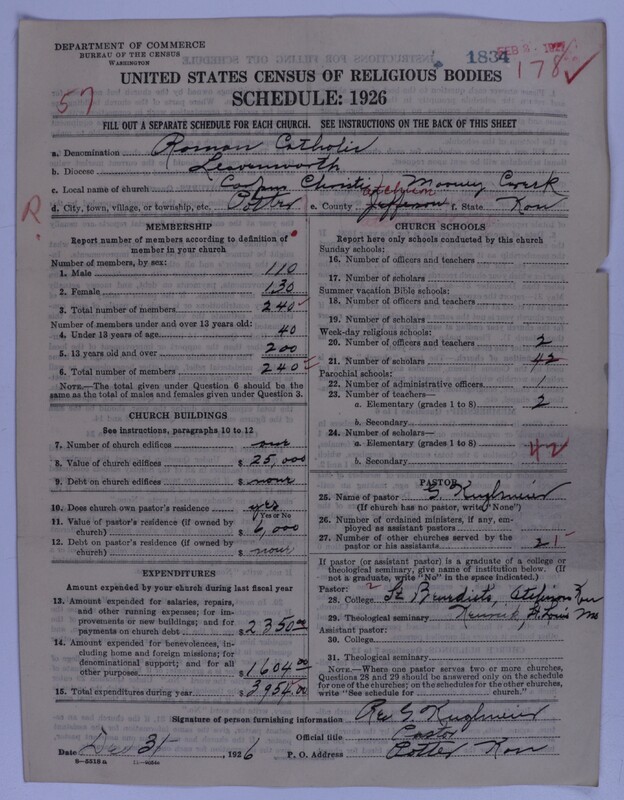 DEPARTMENT OF COMMERCE
BUREAU OF THE CENSUS
WASHINGTON
1834
FEB 9 - 1927
178 ✓
UNITED STATES CENSUS OF RELIGIOUS BODIES
57
SCHEDULE: 1926
FILL OUT A SEPARATE SCHEDULE FOR EACH CHURCH. SEE INSTRUCTIONS ON THE BACK OF THIS SHEET
a. Denomination Roman Catholic
b. Diocese Leavenworth
c. Local name of church Corpus Christi, Mooney Creek
Atchison
d. City, town, village, or township, etc. Potter e. County Jefferson f. State Kan
R.
MEMBERSHIP
Report number of members according to definition of member in your church
Number of members, by sex:
1. Male 110
2. Female 130
3. Total number of members 240
Number of members under and over 13 years old:
4. Under 13 years of age 40
5. 13 years old and over 200
6. Total number of members 240
NOTE.—The total given under Question 6 should be the same as the total of males and females given under Question 3.
CHURCH BUILDINGS
See instructions, paragraphs 10 to 12
7. Number of church edifices one
8. Value of church edifices $ 25,000
9. Debt on church edifices $ none
10. Does church own pastor's residence yes
Yes or No
11. Value of pastor's residence (if owned by church) $ 6,000
12. Debt on pastor's residence (if owned by church) $ none
EXPENDITURES
Amount expended by your church during last fiscal year
13. Amount expended for salaries, repairs, and other running expenses; for improvements or new buildings; and for payments on church debt $ 2350.00
14. Amount expended for benevolences, including home and foreign missions; for denominational support; and for all other purposes $ 1604.00
15. Total expenditures during year $ 3954.00
CHURCH SCHOOLS
Report here only schools conducted by this church
Sunday schools:
16. Number of officers and teachers
17. Number of scholars
Summer vacation Bible schools:
18. Number of officers and teachers
19. Number of scholars
Week-day religious schools:
20. Number of officers and teachers 2
21. Number of scholars 42
Parochial schools:
22. Number of administrative officers 1
23. Number of teachers—
a. Elementary (grades 1 to 8) 2
b. Secondary
24. Number of scholars—
a. Elementary (grades 1 to 8) 42
b. Secondary
PASTOR
25. Name of pastor G. Kuglmeier
(If church has no pastor, write "None")
26. Number of ordained ministers, if any, employed as assistant pastors
27. Number of other churches served by the pastor or his assistants 2 1
If pastor (or assistant pastor) is a graduate of a college or theological seminary, give name of institution below. (If not a graduate, write "No" in the space indicated.)
Pastor:
28. College St Benedicts, Atchison Kan
29. Theological seminary Kenrick St. Louis Mo
Assistant pastor:
30. College
31. Theological seminary
NOTE.—Where one pastor serves two or more churches, Questions 28 and 29 should be answered only on the schedule for one of the churches; on the schedules for the other churches, write "See schedule for ........ church."
Signature of person furnishing information Rev G Kuglmeier
Official title Pastor
Date Dec 31, 1926 P. O. Address Potter Kan
8—5318 a